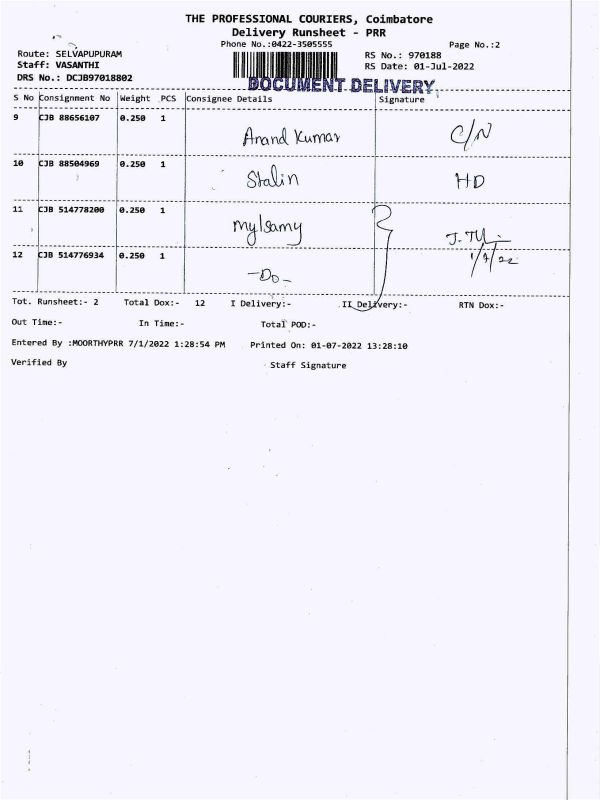 THE PROFESSIONAL COURIERS, Coimbatore
Delivery Runsheet - PRR
Phone No.:0422-3505555 Page No.:2
Route: SELVAPUPURAM RS No.: 970188
Staff: VASANTHI RS Date: 01-Jul-2022
DRS No.: DCJB97018802 DOCUMENT DELIVERY
S No Consignment No Weight PCS Consignee Details Signature
9 CJB 88656107 0.250 1 Anand Kumar C/N
10 CJB 88504969 0.250 1 Stalin HD
11 CJB 514778200 0.250 1 Mylsamy
12 CJB 514776934 0.250 1 -Do- 1/7/22
Tot. Runsheet:- 2 Total Dox:- 12 I Delivery:- II Delivery:- RTN Dox:-
Out Time:- In Time:- Total POD:-
Entered By :MOORTHYPRR 7/1/2022 1:28:54 PM Printed On: 01-07-2022 13:28:10
Verified By Staff Signature